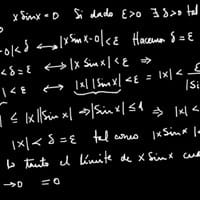 x Sin x = 0 Si dado ε>0 ∃ δ>0 tal
-0|<δ ⟷ |x Sin x - 0| < ε Hacemos δ = ε
<δ = ε ⟷ |x Sin x| < ε ⟹
< ε ⟺ |x| |Sin x| < ε = |x| < ε / |Si
| ≤ |x| |Sin x| ⟹ |Sin x| ≤ 1 ⟹ |x
|x| < δ = ε tal como |x Sin x|
lo tanto el límite de x Sin x cua
→0 = 0